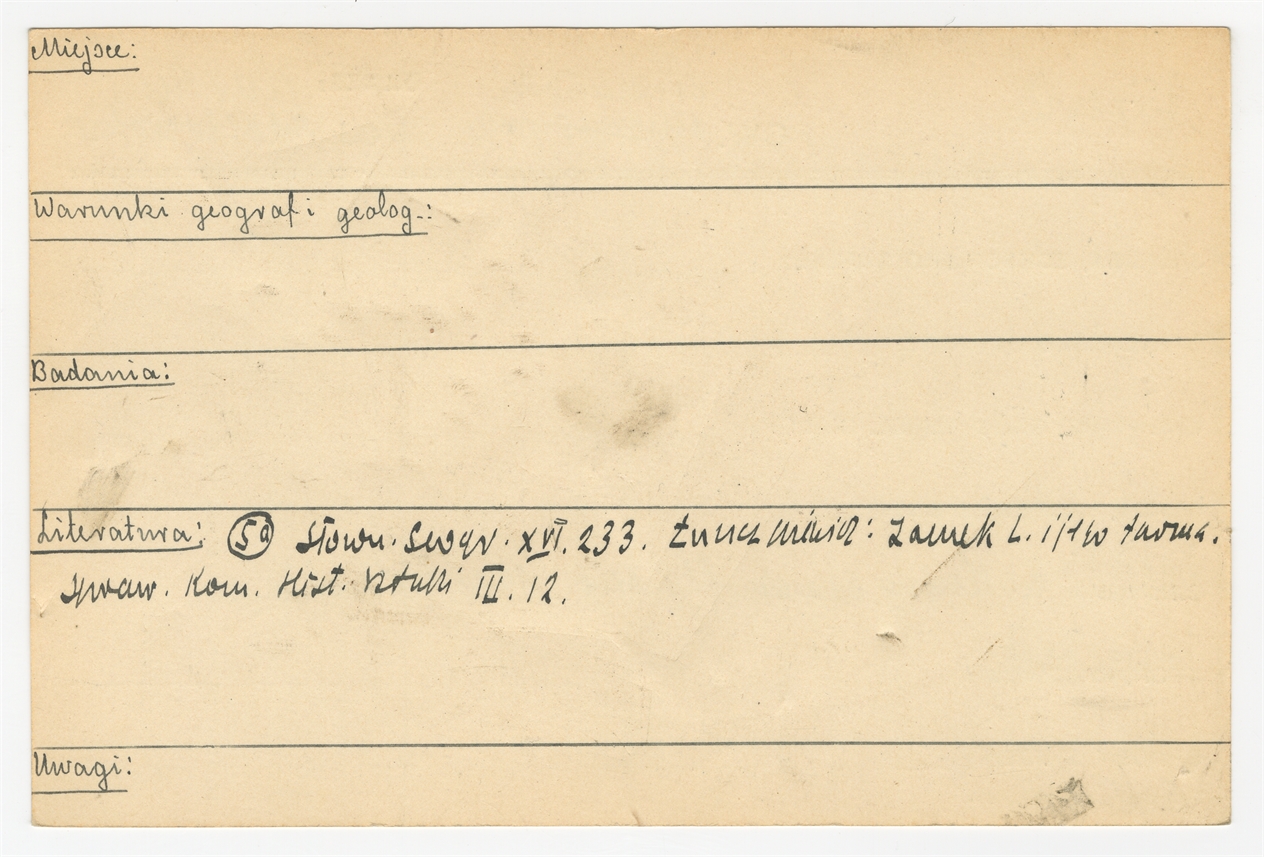 Miejsce:
Warunki geograf i geolog.:
Badania:
Literatura: 50 Słown. Geogr. XVI. 233. Zamek L.
Spraw. Kom. Hist. Sztuki III. 12.
Uwagi: